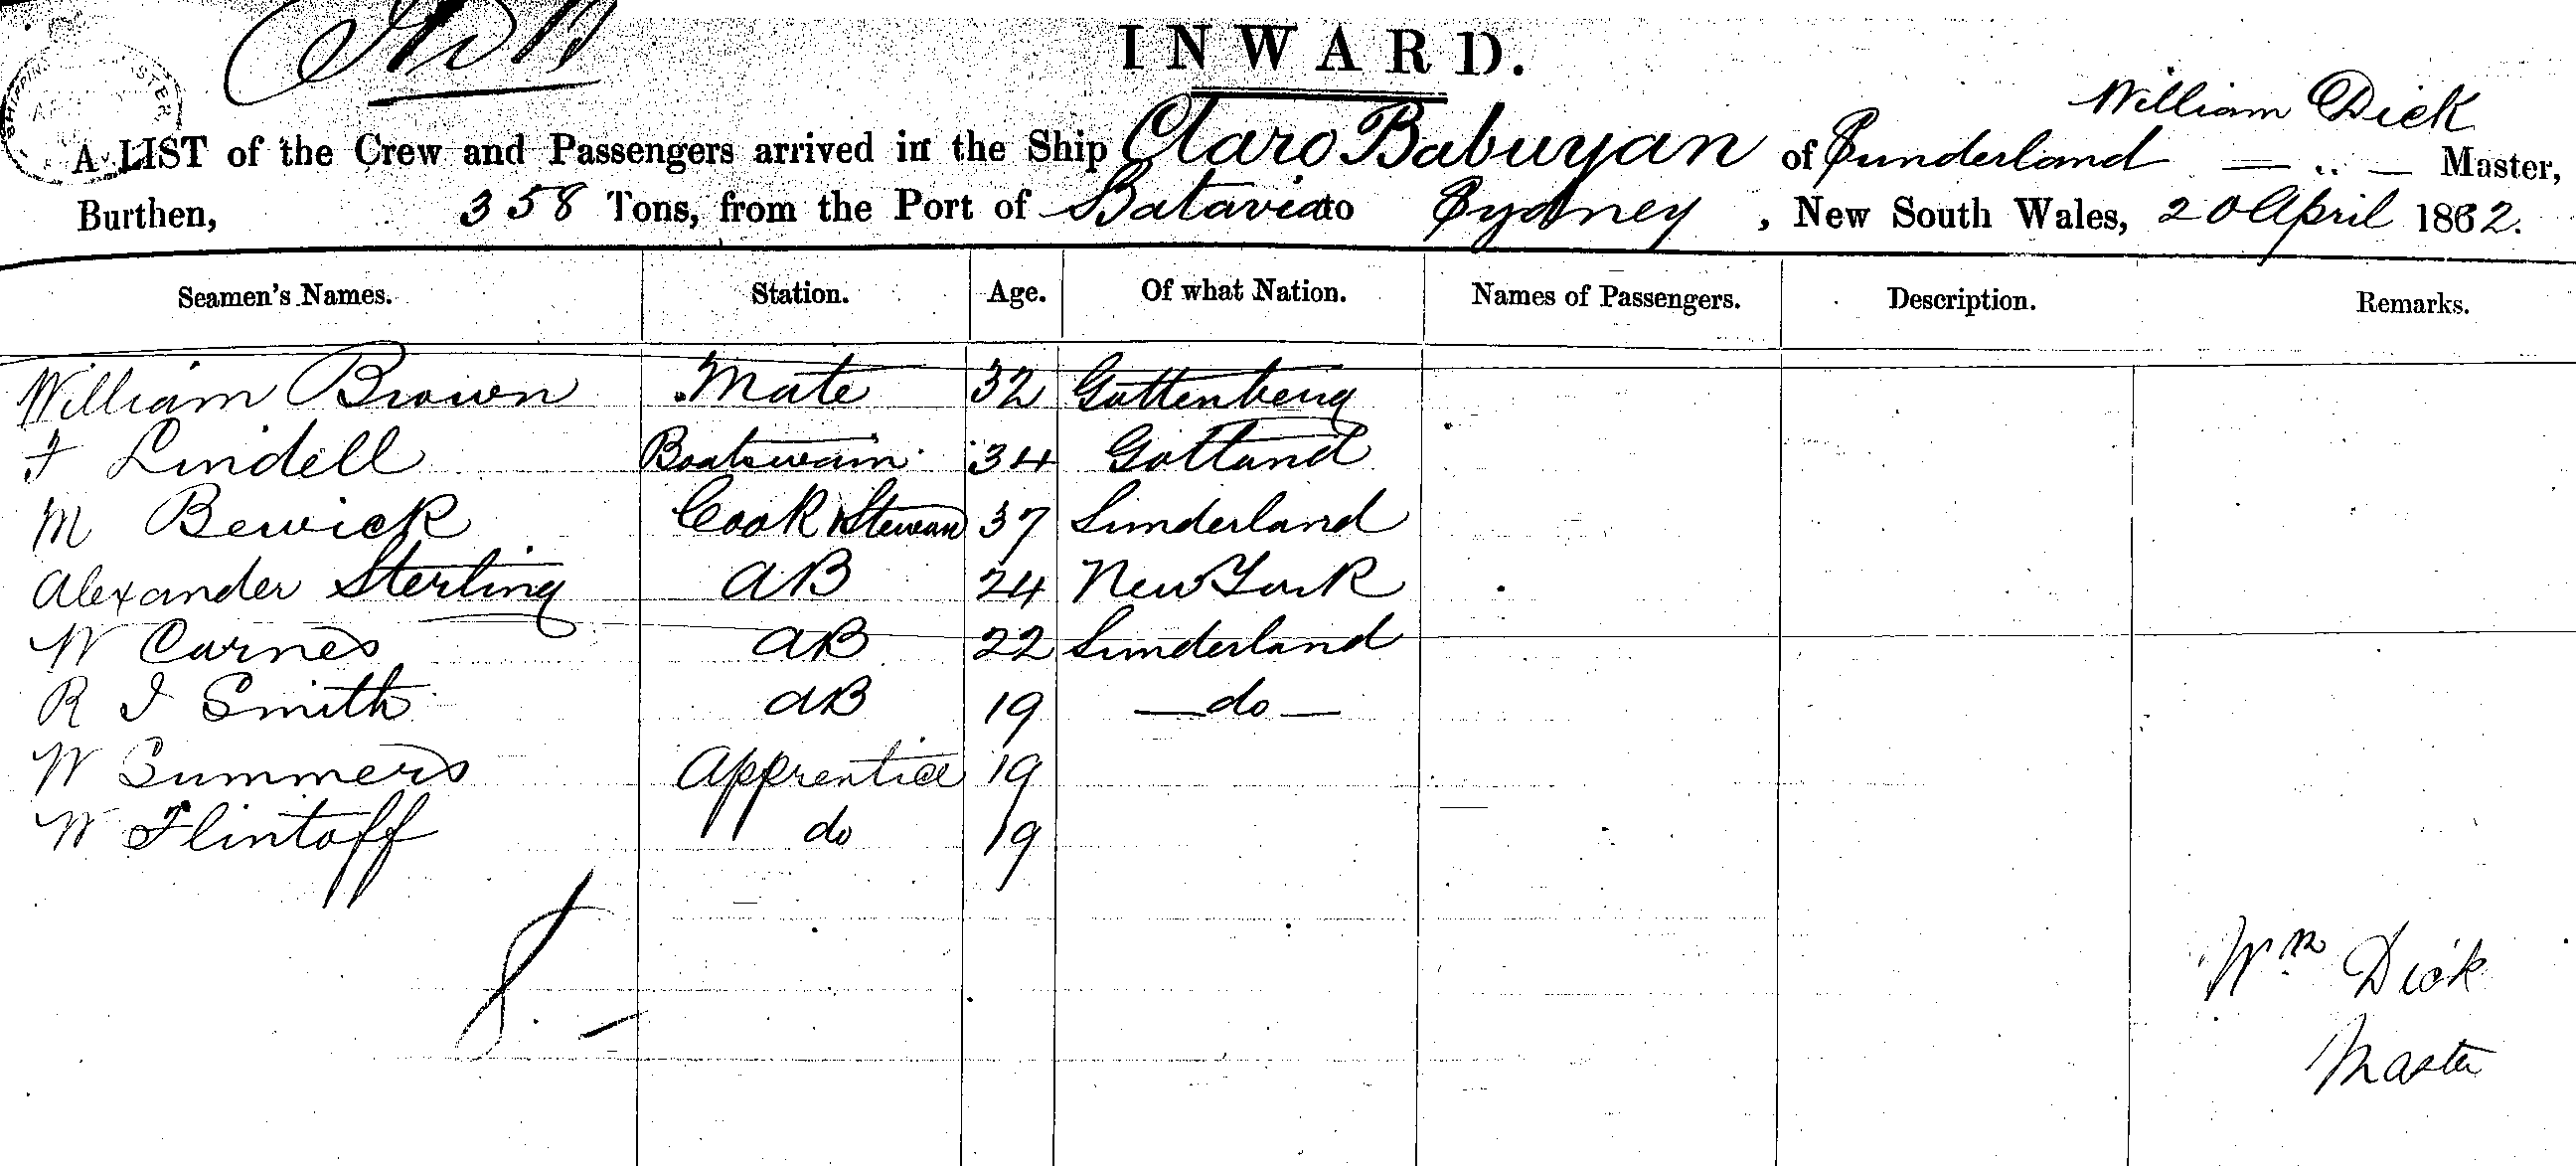 INWARD.
William Dick
A LIST of the Crew and Passengers arrived in the Ship Claro Babuyan of Sunderland — .. — Master,
Burthen, 358 Tons, from the Port of Batavia to Sydney, New South Wales, 20 April 1862.
Seamen's Names. Station. Age. Of what Nation. Names of Passengers. Description. Remarks.
William Brown Mate 32 Gottenberg
F Lindell Boatswain 34 Gotland
M Bewick Cook & Steward 37 Sunderland
Alexander Sterling AB 24 New York
W Carnes AB 22 Sunderland
R I Smith AB 19 — do —
W Summers Apprentice 19
W Flintoff do 19
Wm Dick
Master